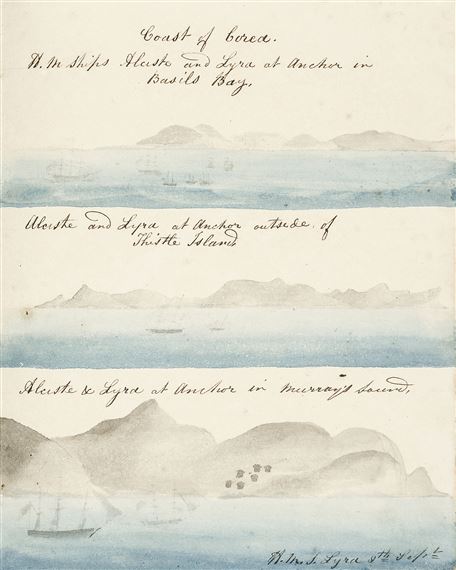 Coast of Corea.
H.M ships Alceste and Lyra at Anchor in
Basils Bay,
Alceste and Lyra at Anchor outside of
Thistle Island
Alceste & Lyra at Anchor in Murray's Sound,
H.M.S. Lyra 8th Sept